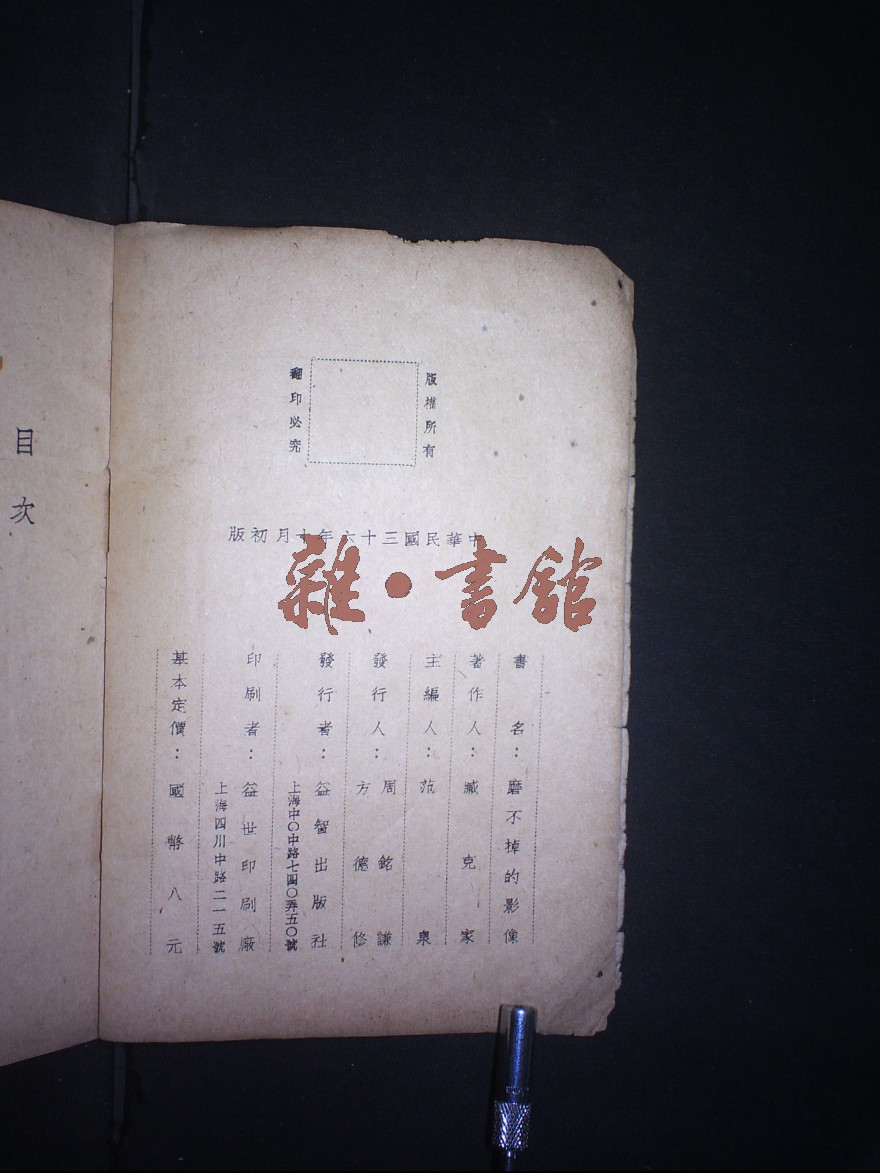 版權所有
翻印必究
中華民國三十六年十月初版
雜·書館
書名：磨不掉的影像
著作人：臧克家
主編人：范泉
發行人：周銘謙
方德修
發行者：益智出版社
上海中〇中路七四〇弄五〇號
印刷者：益世印刷廠
上海四川中路二一五號
基本定價：國幣八元
目次